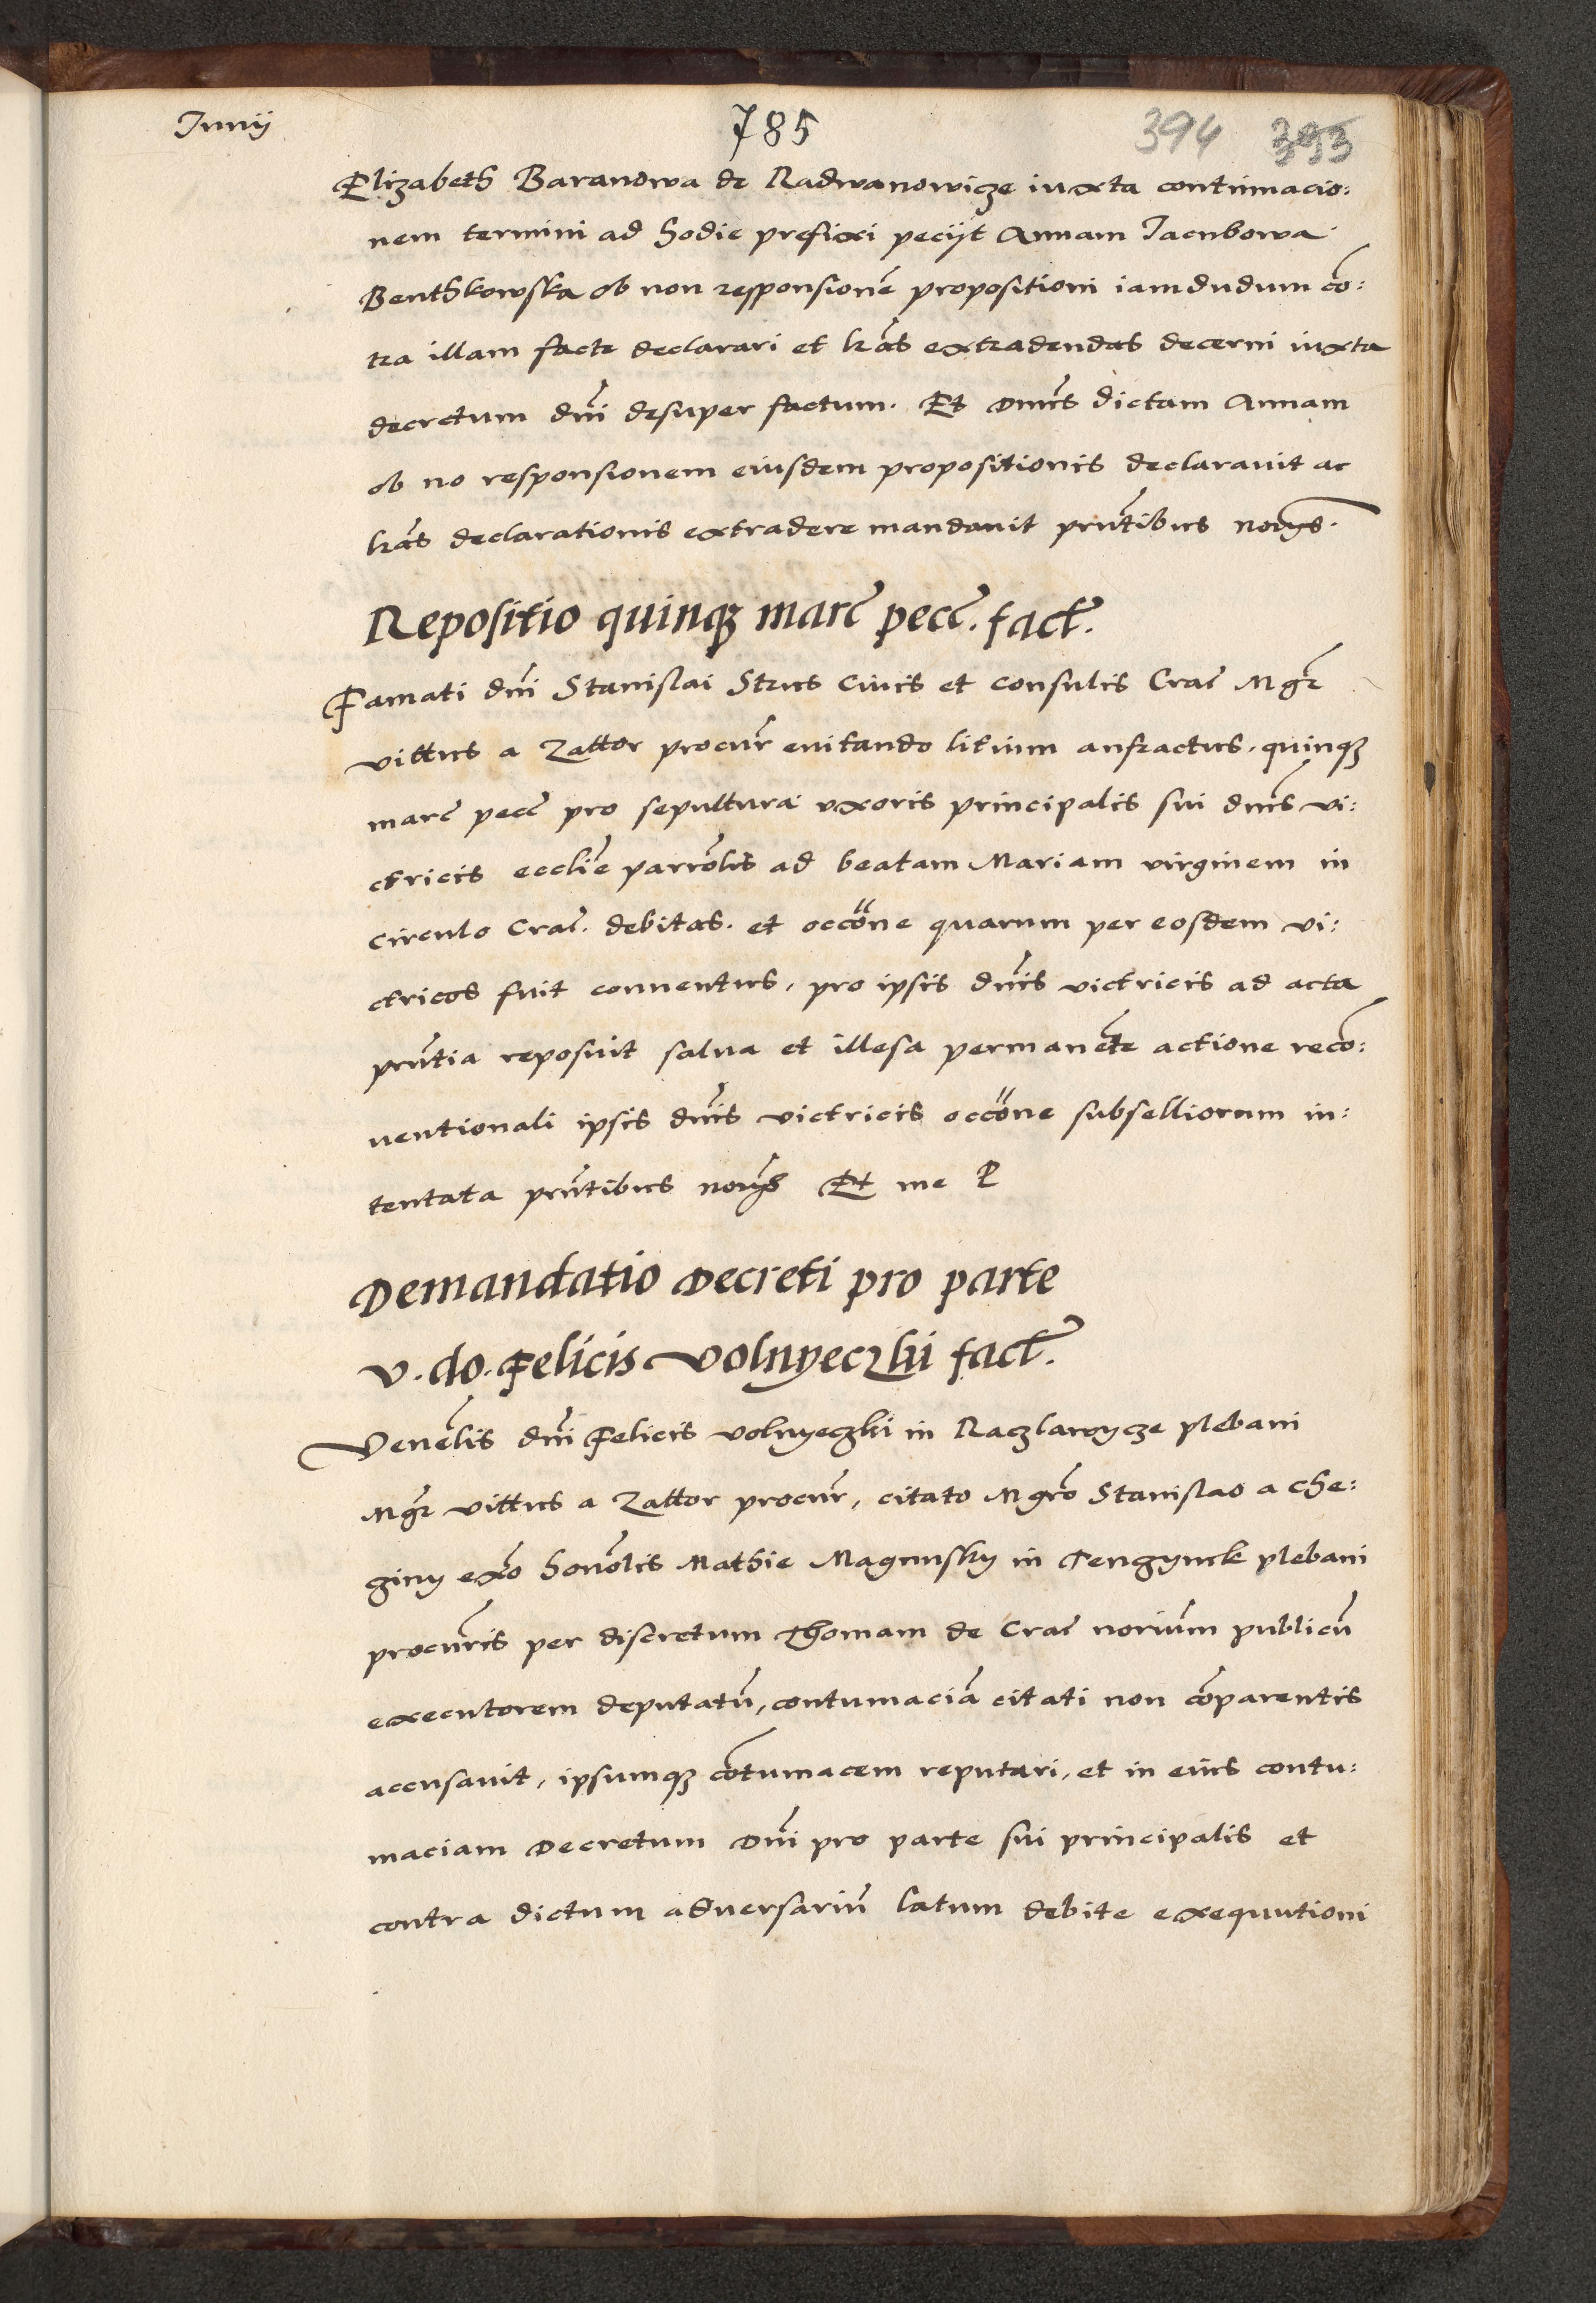 Junij
785
394 393
Elizabeth Baranowa de Radwanowicze iuxta continuacio:
nem termini ad hodie prefixi peciit Annam Jacubowa
Benthkowska ob non responsionē propositioni iamdudum cō:
tra illam facte declarari et lrās extradendas decerni iuxta
decretum dni desuper factum. Et Dnus dictam Annam
ob no responsionem eiusdem propositionis declarauit ac
lrās declarationis extradere mandauit pntibus notijs.
Repositio quinq; marc pecc. fact.
Famati dni Stanislai Strus Ciuis et Consulis Crac Mgr
vittus a Zattor procur euitando litium anfractus. quinq;
marc pecc pro sepultura vxoris principalis sui dnis vi:
ctricis ecclie parrolis ad beatam Mariam virginem in
circulo Crac. debitas. et occōne quarum per eosdem vi:
ctricos fuit conuentus, pro ipsis dnis victricis ad acta
pntia reposuit salua et illesa permanēte actione recō:
uentionali ipsis dnis victricis occōne subselliorum in:
tentata pntibus notijs Et me P
Demandatio Decreti pro parte
v. do. Felicis Volnyeczkii fact.
Venelis dni Felicis volnyeczki in Raczlawycze plebani
Mgr vittus a Zattor procur, citato Mgro Stanislao a Che:
giny exo honolis Mathie Magnusky in Tengynek plebani
procuris per discretum Thomam de Crac norium publicū
executorem deputatū, contumaciā citati non cōparentis
accusauit, ipsumq; cōtumacem reputari, et in eius contu:
maciam Decretum Dni pro parte sui principalis et
contra dictum aduersariū latum debite exequutioni